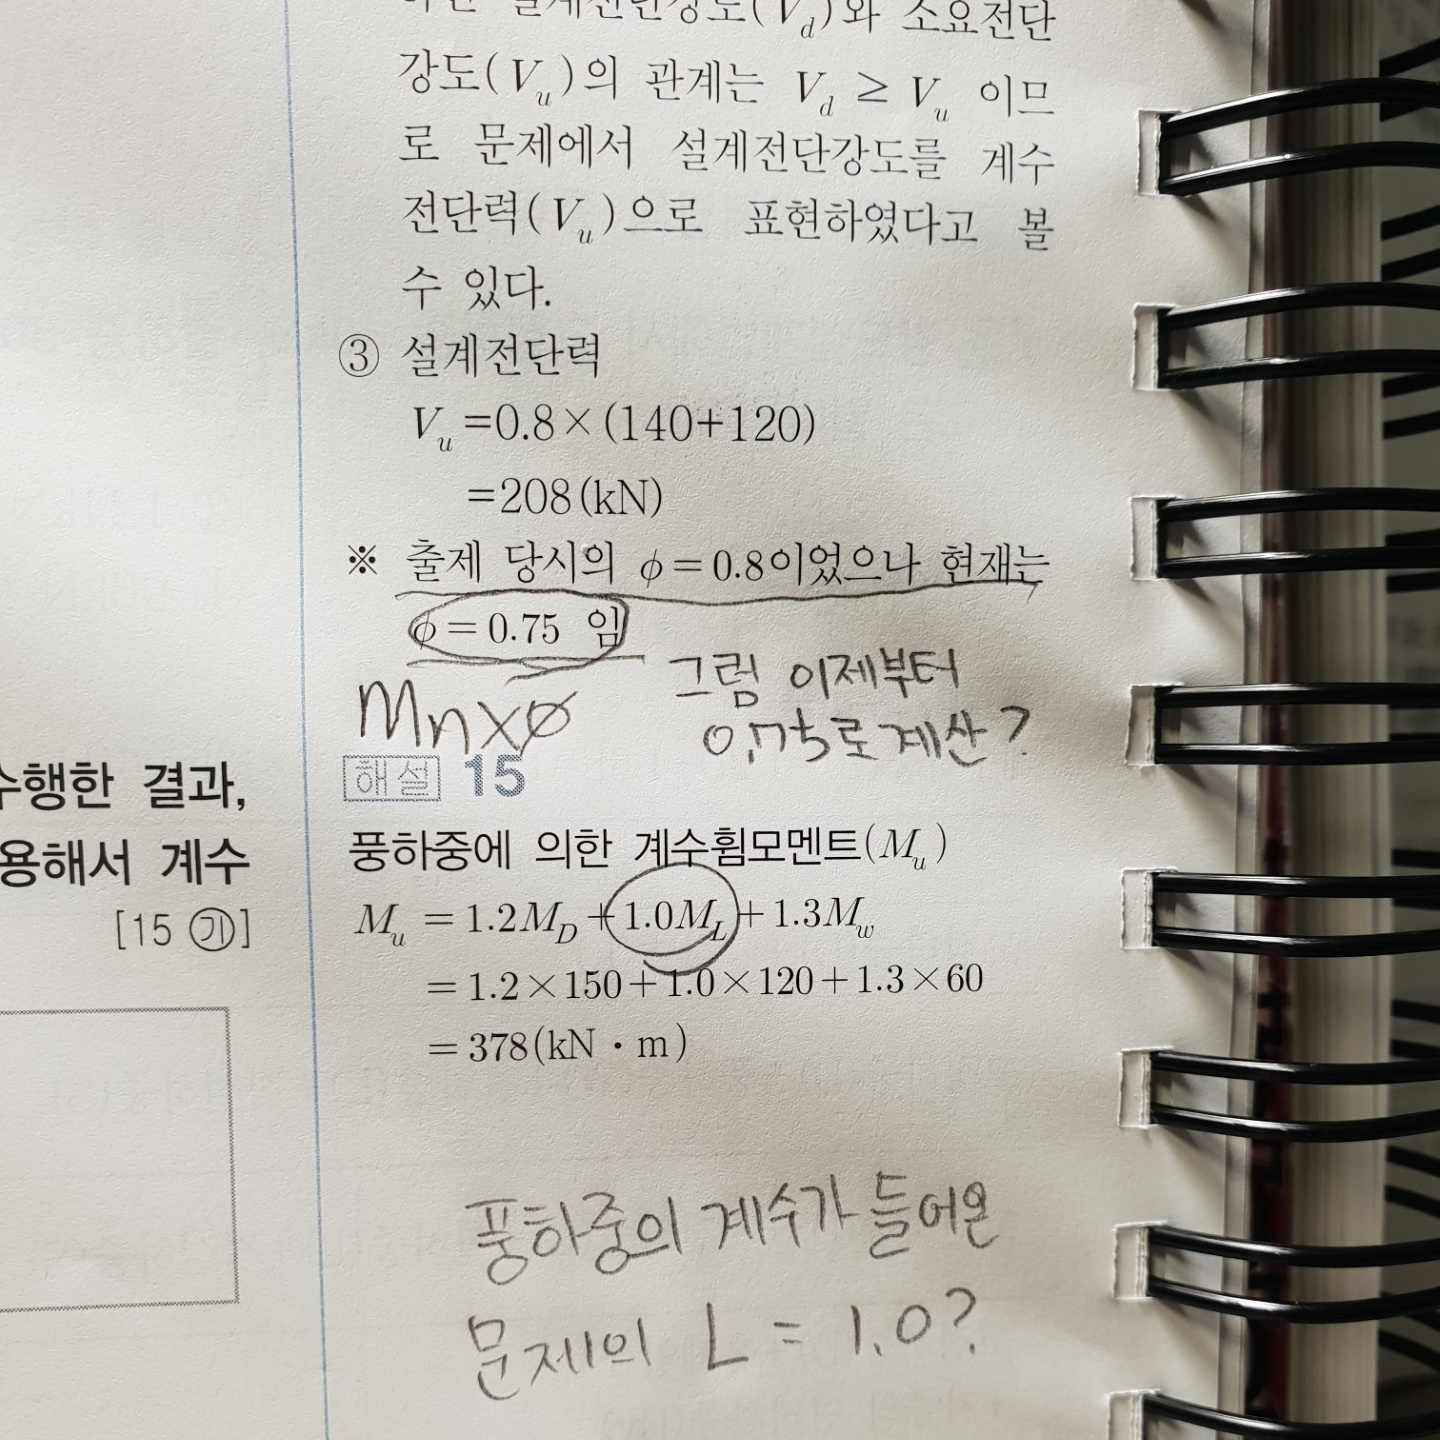 하면 설계전단강도(V_d)와 소요전단
강도(V_u)의 관계는 V_d ≥ V_u 이므
로 문제에서 설계전단강도를 계수
전단력(V_u)으로 표현하였다고 볼
수 있다.
③ 설계전단력
V_u =0.8×(140+120)
=208(kN)
※ 출제 당시의 φ=0.8이었으나 현재는
φ=0.75 임
그럼 이제부터
0.75로 계산?
Mn×φ
해설 15
풍하중에 의한 계수휨모멘트(M_u)
M_u = 1.2M_D + 1.0M_L + 1.3M_w
= 1.2×150+1.0×120+1.3×60
= 378(kN·m)
풍하중의 계수가 들어온
문제의 L = 1.0?
수행한 결과,
용해서 계수
[15 ㉮]